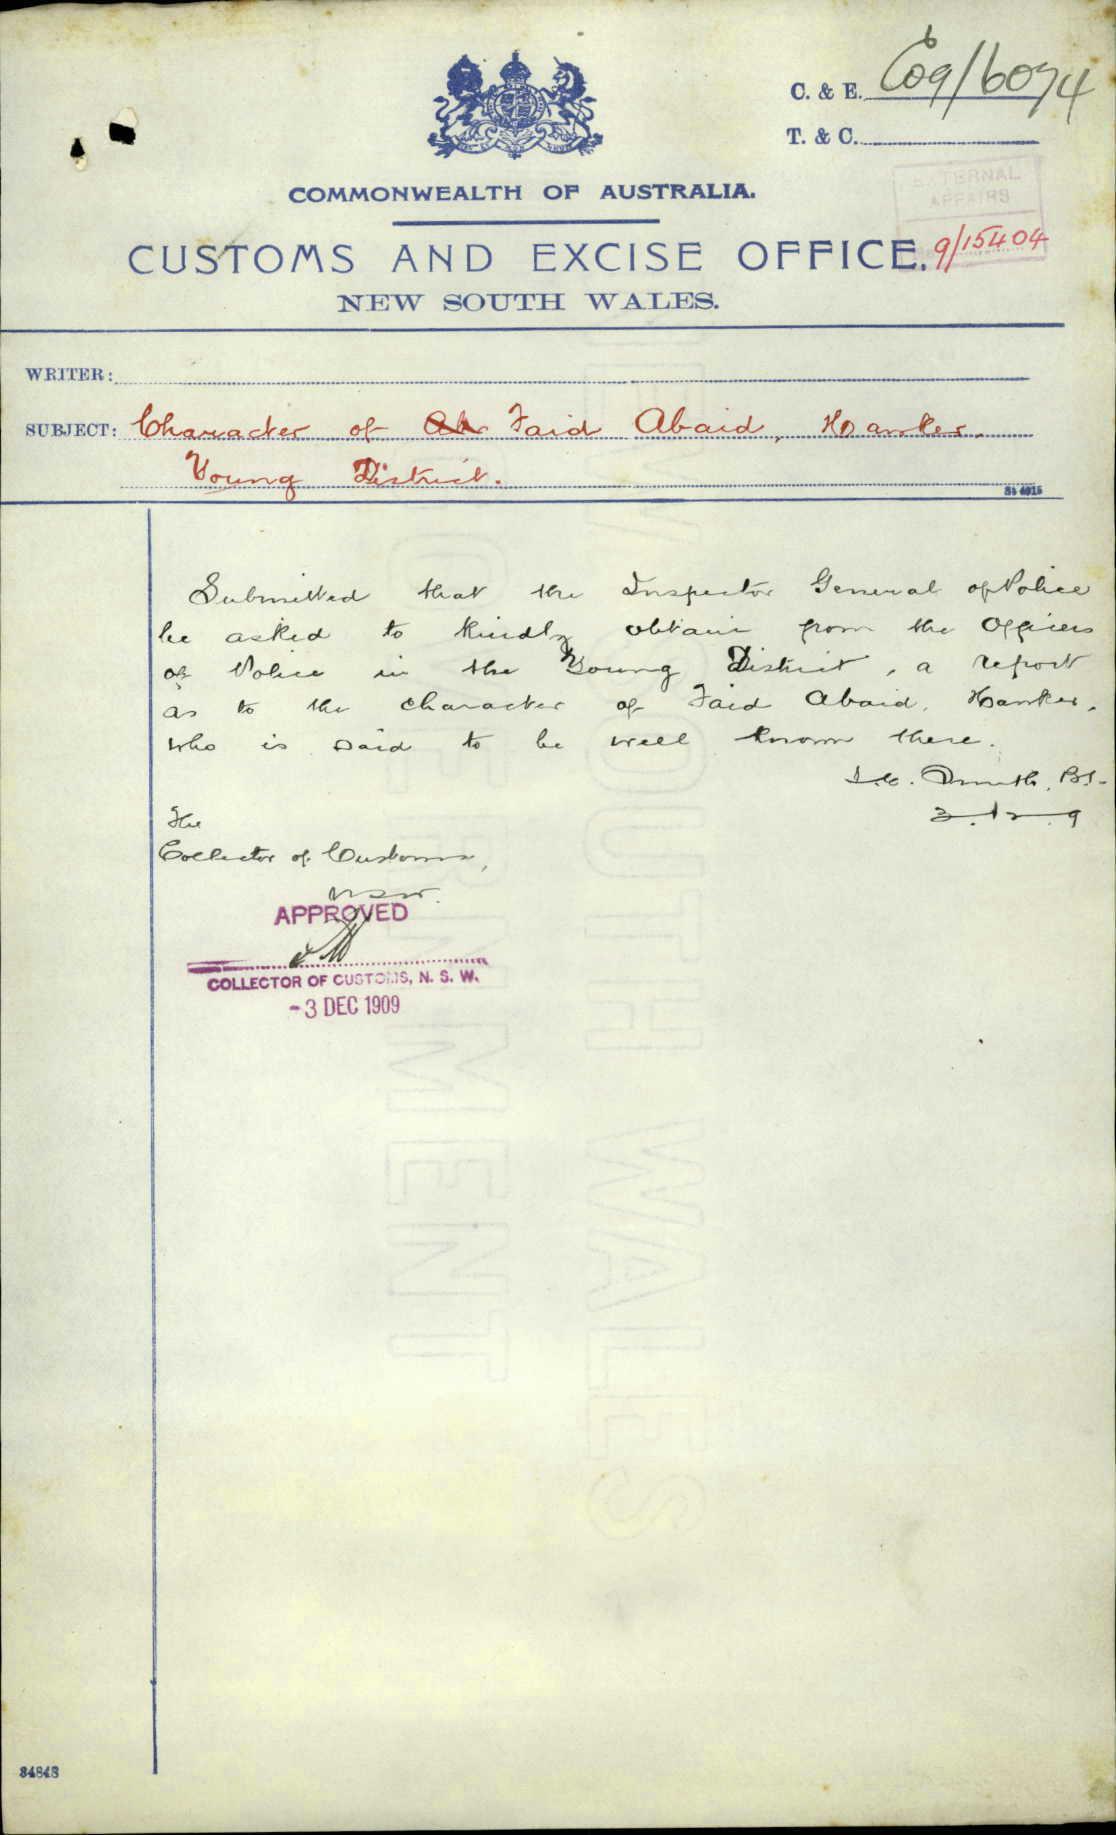 C. & E. C09/6074
T. & C.
COMMONWEALTH OF AUSTRALIA.
EXTERNAL
AFFAIRS
9/15404
CUSTOMS AND EXCISE OFFICE.
NEW SOUTH WALES.
WRITER:
SUBJECT: Character of Faid Abaid, Hawker.
Young District.
St 4915
Submitted that the Inspector General of Police
be asked to kindly obtain from the Officers
of Police in the Young District, a report
as to the character of Faid Abaid, Hawker,
who is said to be well known there.
Smith, B.I.
3.12.9
The
Collector of Customs,
NSW.
APPROVED
COLLECTOR OF CUSTOMS, N. S. W.
-3 DEC 1909
NEW SOUTH WALES
GOVERNMENT
34848